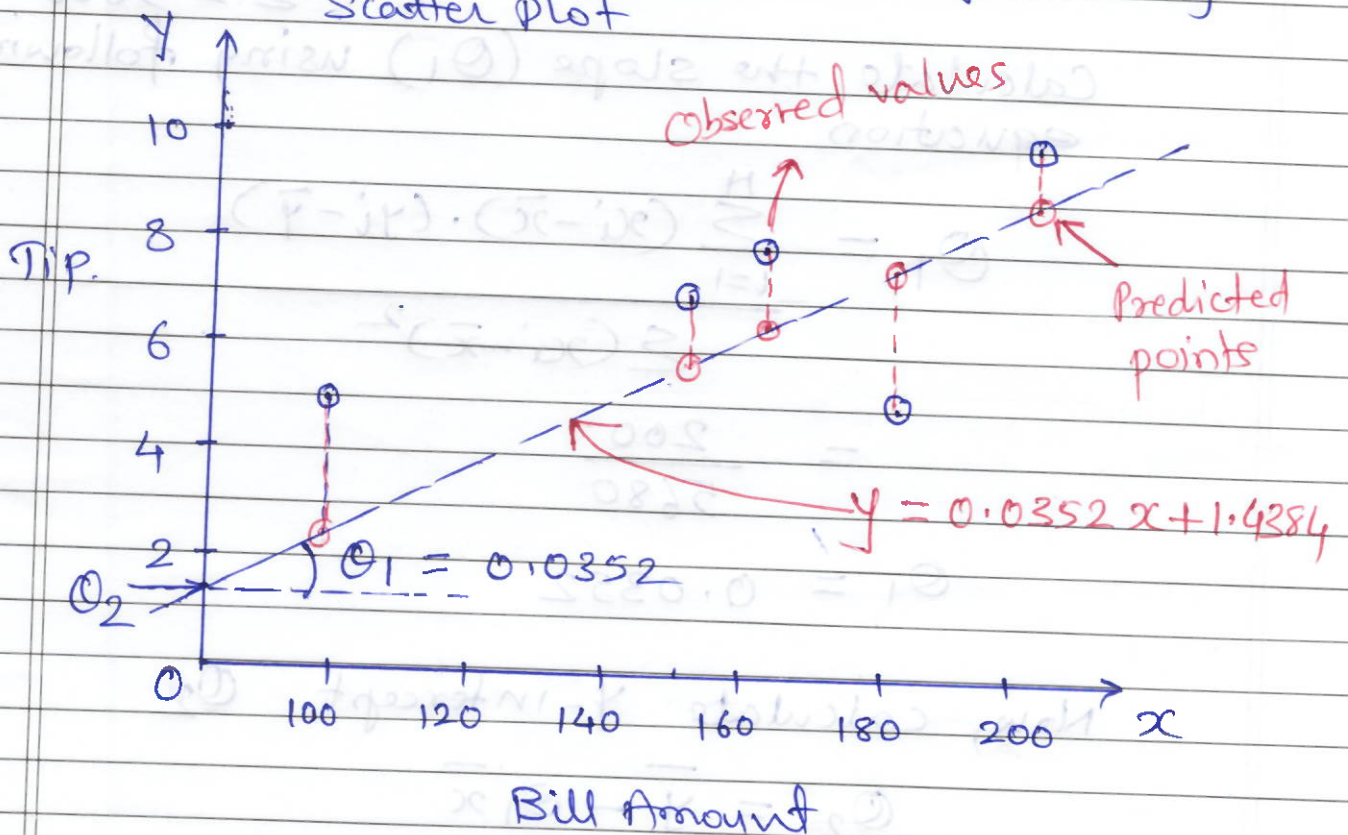 Scatter Plot
y
Observed values
10
8
Tip.
6
Predicted
points
4
y = 0.0352 x + 1.4384
2
θ1 = 0.0352
θ2
0
100 120 140 160 180 200 x
Bill Amount